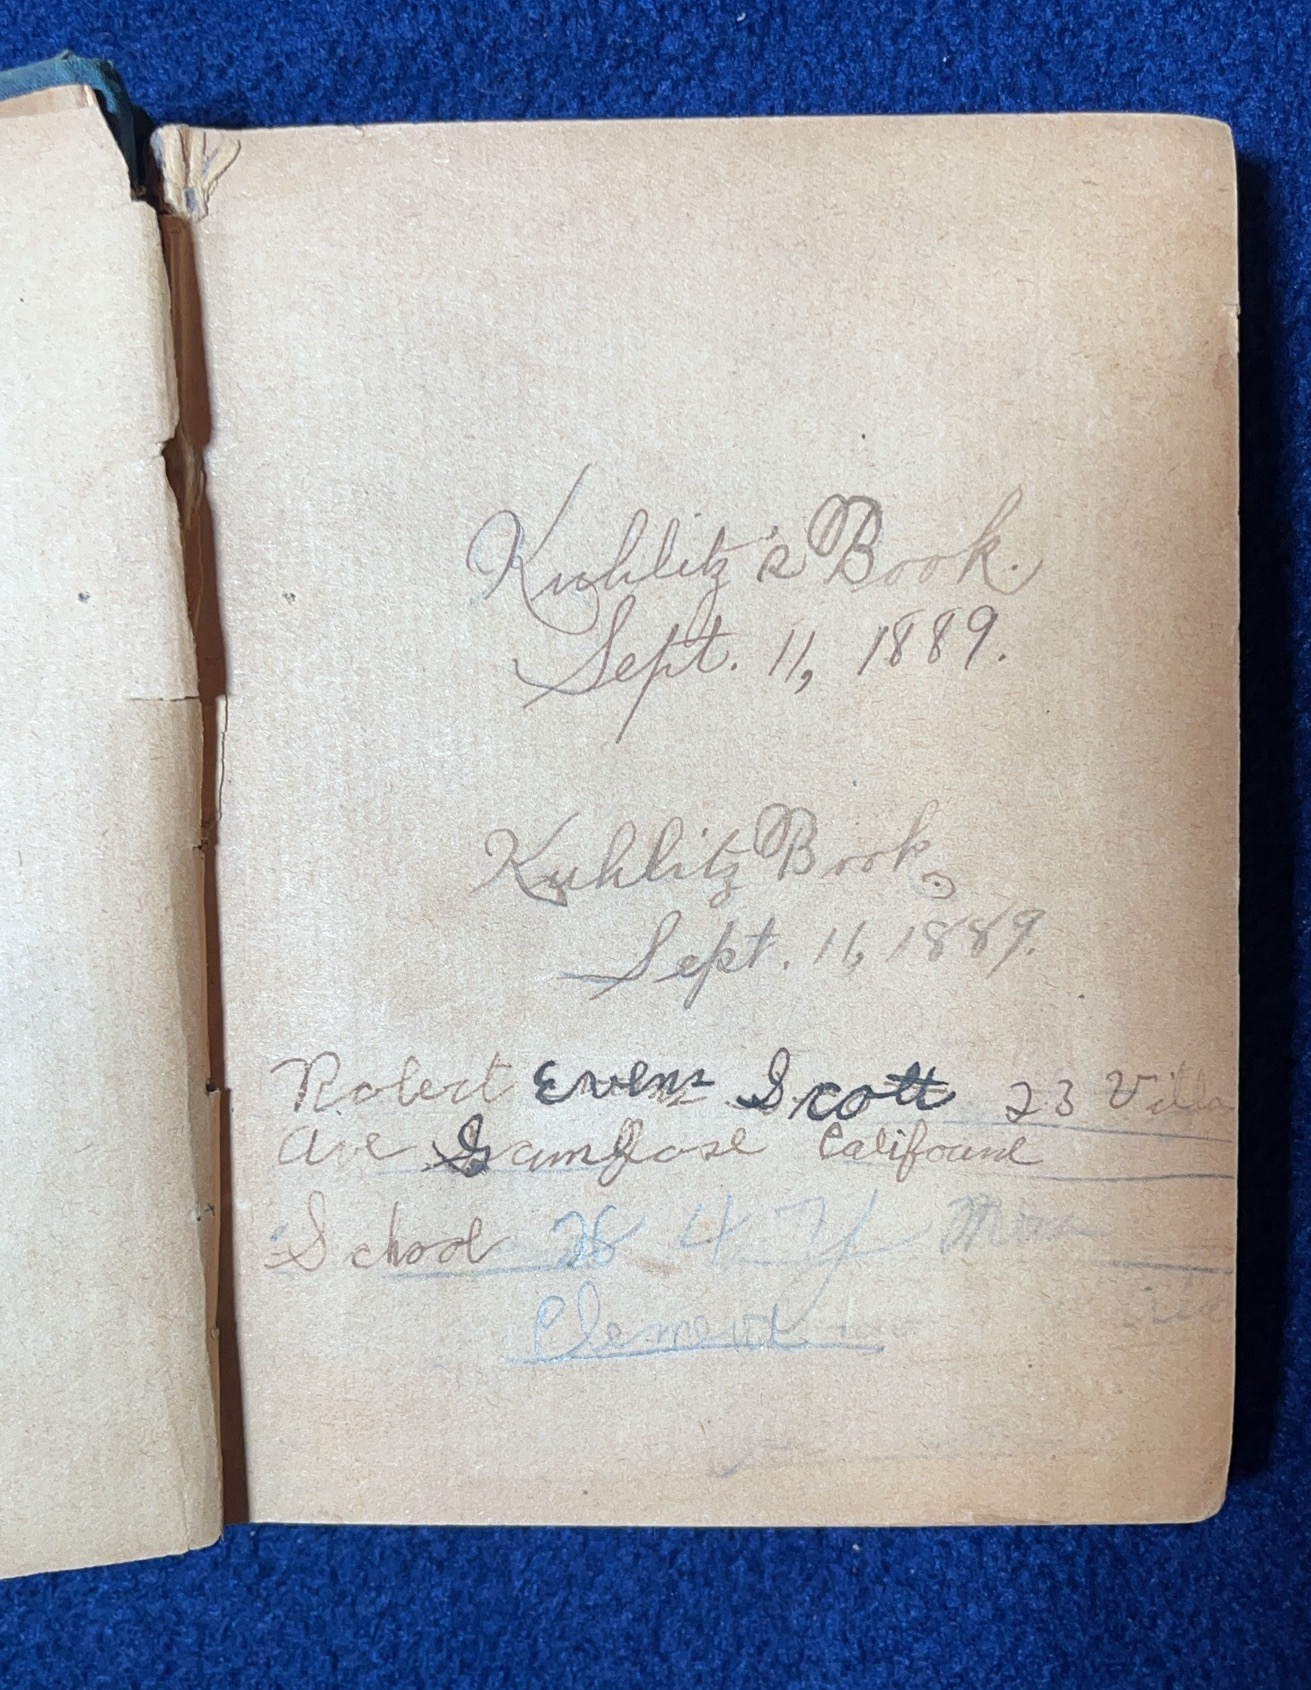 Kuhlitz's Book.
Sept. 11, 1889.
Kuhlitz Book.
Sept. 11, 1889.
Robert Evens Scott 23 Villa
Ave SamJose
School 4 Y
Clement